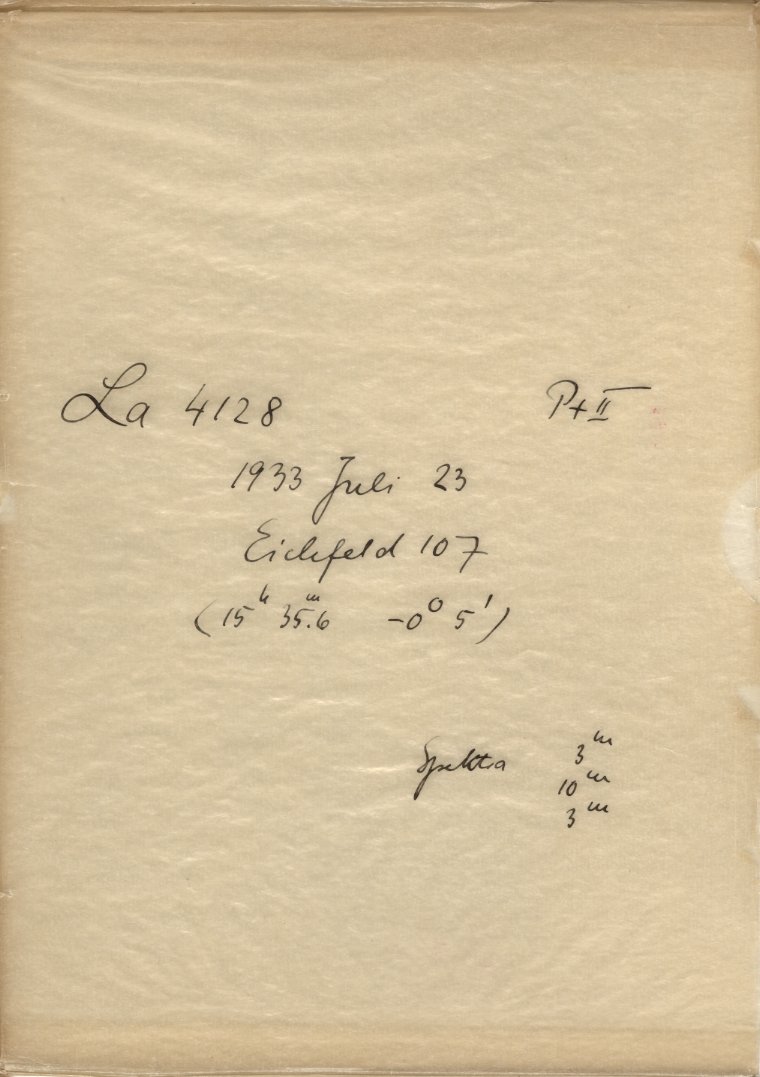 La 4128 P+II
1933 Juli 23
Eichfeld 107
(15ʰ 35ᵐ.6 -0° 5')
Spektra 3ᵐ
10ᵐ
3ᵐ